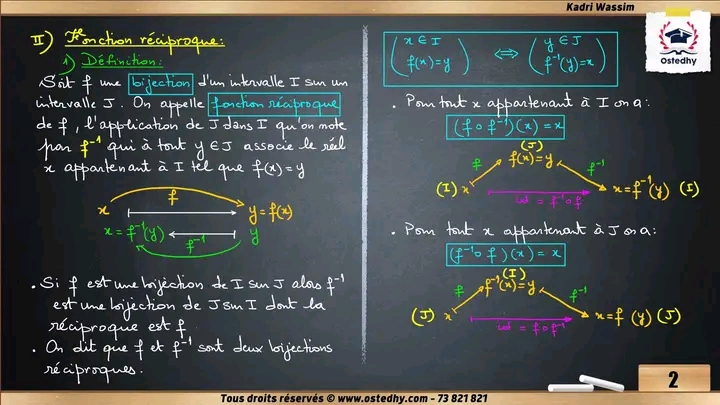 Kadri Wassim
Ostedhy
II) Fonction réciproque:
1) Définition:
Soit f une bijection d'un intervalle I sur un
intervalle J. On appelle fonction réciproque
de f, l'application de J dans I qu'on note
par f⁻¹ qui à tout y ∈ J associe le réel
x appartenant à I tel que f(x) = y
f
x y = f(x)
x = f⁻¹(y) y
f⁻¹
. Si f est une bijection de I sur J alors f⁻¹
est une bijection de J sur I dont la
réciproque est f
. On dit que f et f⁻¹ sont deux bijections
réciproques.
x ∈ I ⇔ y ∈ J
f(x) = y f⁻¹(y) = x
. Pour tout x appartenant à I on a:
(f o f⁻¹)(x) = x
(J)
f f(x) = y f⁻¹
(I) x x = f⁻¹(y) (I)
id = f⁻¹o f
. Pour tout x appartenant à J on a:
(f⁻¹o f)(x) = x
(I)
f f⁻¹(x) = y f⁻¹
(J) x x = f(y) (J)
id = f o f⁻¹
2
Tous droits réservés © www.ostedhy.com - 73 821 821